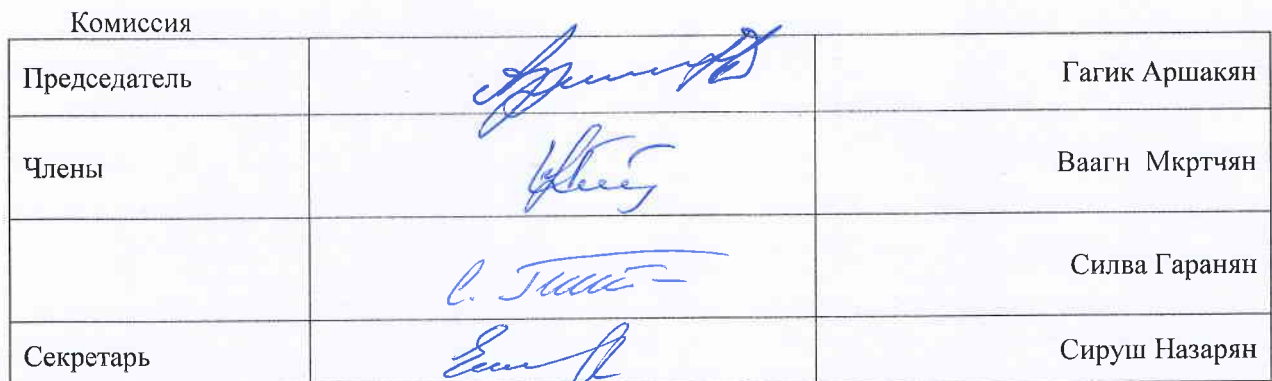 Комиссия
Председатель Гагик Аршакян
Члены Ваагн Мкртчян
Силва Гаранян
Секретарь Сируш Назарян